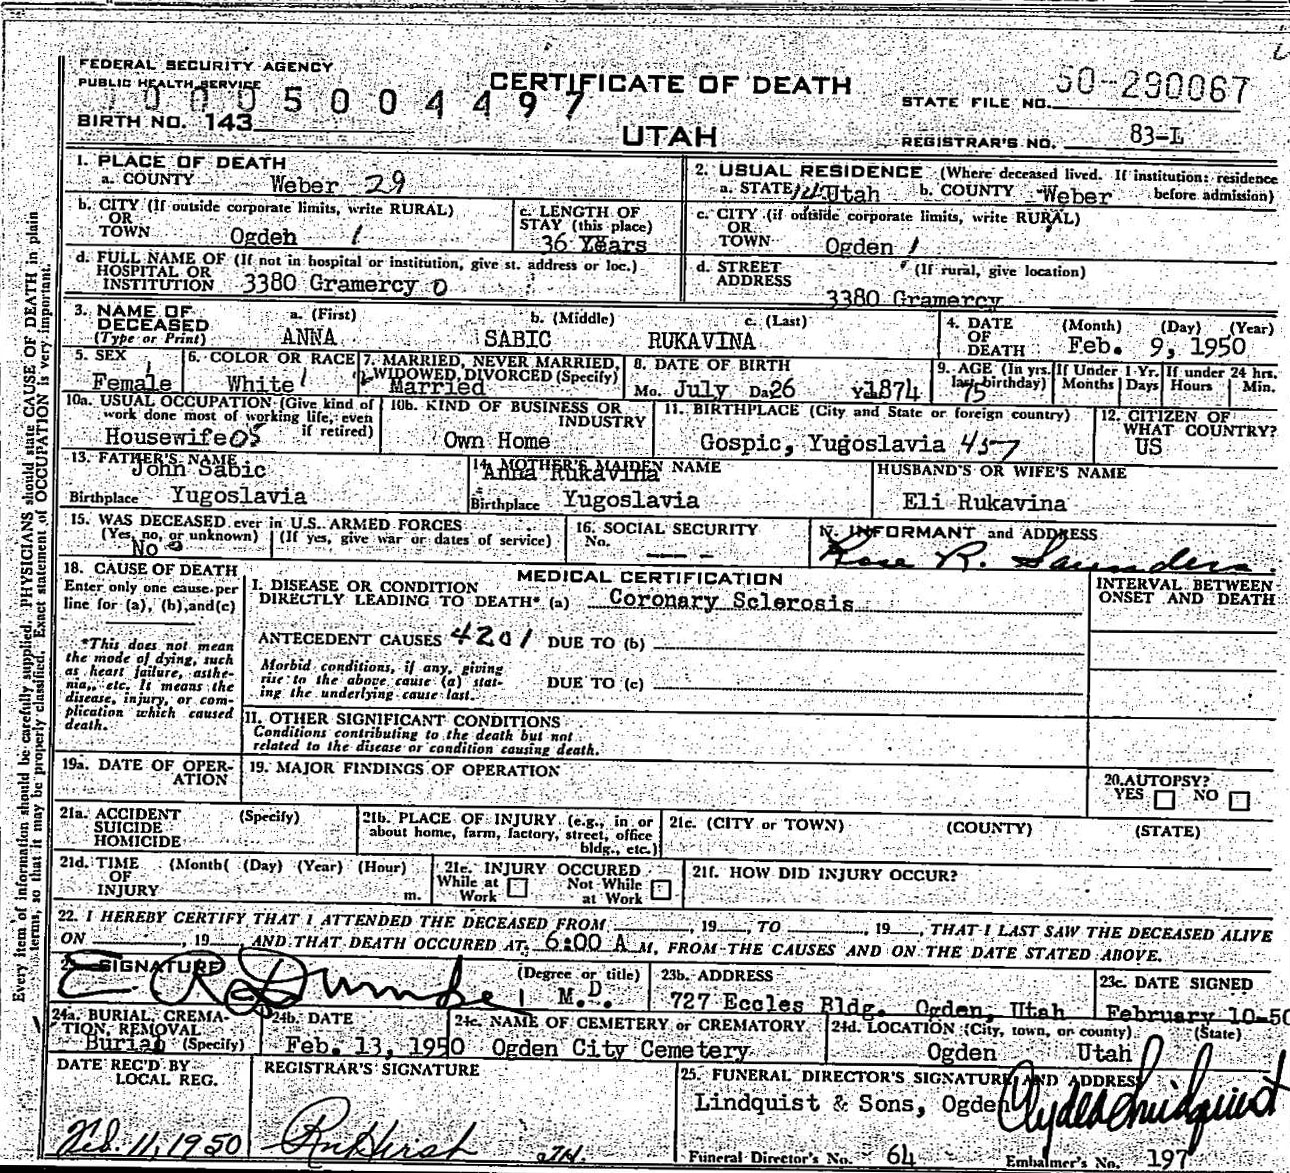 FEDERAL SECURITY AGENCY
PUBLIC HEALTH SERVICE
CERTIFICATE OF DEATH
STATE FILE NO. 50-290067
0005004497
BIRTH NO. 143
UTAH
REGISTRAR'S NO. 83-L
1. PLACE OF DEATH
a. COUNTY Weber 29
2. USUAL RESIDENCE (Where deceased lived. If institution: residence before admission)
a. STATE Utah b. COUNTY Weber
b. CITY (If outside corporate limits, write RURAL)
OR
TOWN Ogden 1
c. LENGTH OF
STAY (this place)
36 Years
c. CITY (if outside corporate limits, write RURAL)
OR
TOWN Ogden 1
d. FULL NAME OF (If not in hospital or institution, give st. address or loc.)
HOSPITAL OR
INSTITUTION 3380 Gramercy 0
d. STREET (If rural, give location)
ADDRESS
3380 Gramercy
3. NAME OF
DECEASED
(Type or Print)
a. (First) b. (Middle) c. (Last)
ANNA SABIC RUKAVINA
4. DATE
OF
DEATH
(Month) (Day) (Year)
Feb. 9, 1950
5. SEX
Female
6. COLOR OR RACE
White
7. MARRIED, NEVER MARRIED,
WIDOWED, DIVORCED (Specify)
Married
8. DATE OF BIRTH
Mo. July Da. 26 Yr. 1874
9. AGE (In yrs.
last birthday)
75
If Under 1 Yr.
Months Days
If under 24 hrs.
Hours Min.
10a. USUAL OCCUPATION (Give kind of
work done most of working life, even
if retired)
Housewife 05
10b. KIND OF BUSINESS OR
INDUSTRY
Own Home
11. BIRTHPLACE (City and State or foreign country)
Gospic, Yugoslavia 457
12. CITIZEN OF
WHAT COUNTRY?
US
13. FATHER'S NAME
John Sabic
Birthplace Yugoslavia
14. MOTHER'S MAIDEN NAME
Anna Rukavina
Birthplace Yugoslavia
HUSBAND'S OR WIFE'S NAME
Eli Rukavina
15. WAS DECEASED ever in U.S. ARMED FORCES
(Yes, no, or unknown) (If yes, give war or dates of service)
No
16. SOCIAL SECURITY
No.
17. INFORMANT and ADDRESS
Rose R. Saunders
18. CAUSE OF DEATH
Enter only one cause per
line for (a), (b), and (c)
*This does not mean
the mode of dying, such
as heart failure, asthe-
nia, etc. It means the
disease, injury, or com-
plication which caused
death.
MEDICAL CERTIFICATION
I. DISEASE OR CONDITION
DIRECTLY LEADING TO DEATH* (a) Coronary Sclerosis
ANTECEDENT CAUSES 4201 DUE TO (b)
Morbid conditions, if any, giving
rise to the above cause (a) stat-
ing the underlying cause last.
DUE TO (c)
II. OTHER SIGNIFICANT CONDITIONS
Conditions contributing to the death but not
related to the disease or condition causing death.
INTERVAL BETWEEN
ONSET AND DEATH
19a. DATE OF OPER-
ATION
19. MAJOR FINDINGS OF OPERATION
20. AUTOPSY?
YES NO
21a. ACCIDENT (Specify)
SUICIDE
HOMICIDE
21b. PLACE OF INJURY (e.g., in or
about home, farm, factory, street, office
bldg., etc.)
21c. (CITY or TOWN) (COUNTY) (STATE)
21d. TIME (Month( (Day) (Year) (Hour)
OF
INJURY m.
21e. INJURY OCCURED
While at Work Not While at Work
21f. HOW DID INJURY OCCUR?
22. I HEREBY CERTIFY THAT I ATTENDED THE DECEASED FROM , 19 , TO , 19 , THAT I LAST SAW THE DECEASED ALIVE
ON , 19 AND THAT DEATH OCCURED AT 6:00 A M, FROM THE CAUSES AND ON THE DATE STATED ABOVE.
SIGNATURE (Degree or title)
M.D.
23b. ADDRESS
727 Eccles Bldg. Ogden, Utah
23c. DATE SIGNED
February 10-50
24a. BURIAL, CREMA-
TION, REMOVAL
Burial (Specify)
24b. DATE
Feb. 13, 1950
24c. NAME OF CEMETERY or CREMATORY
Ogden City Cemetery
24d. LOCATION (City, town, or county) (State)
Ogden Utah
DATE REC'D BY
LOCAL REG.
Feb. 11, 1950
REGISTRAR'S SIGNATURE
25. FUNERAL DIRECTOR'S SIGNATURE AND ADDRESS
Lindquist & Sons, Ogden
Funeral Director's No. 64 Embalmer's No. 197
Every item of information should be carefully supplied. PHYSICIANS should state CAUSE OF DEATH in plain
terms, so that it may be properly classified. Exact statement of OCCUPATION is very important.